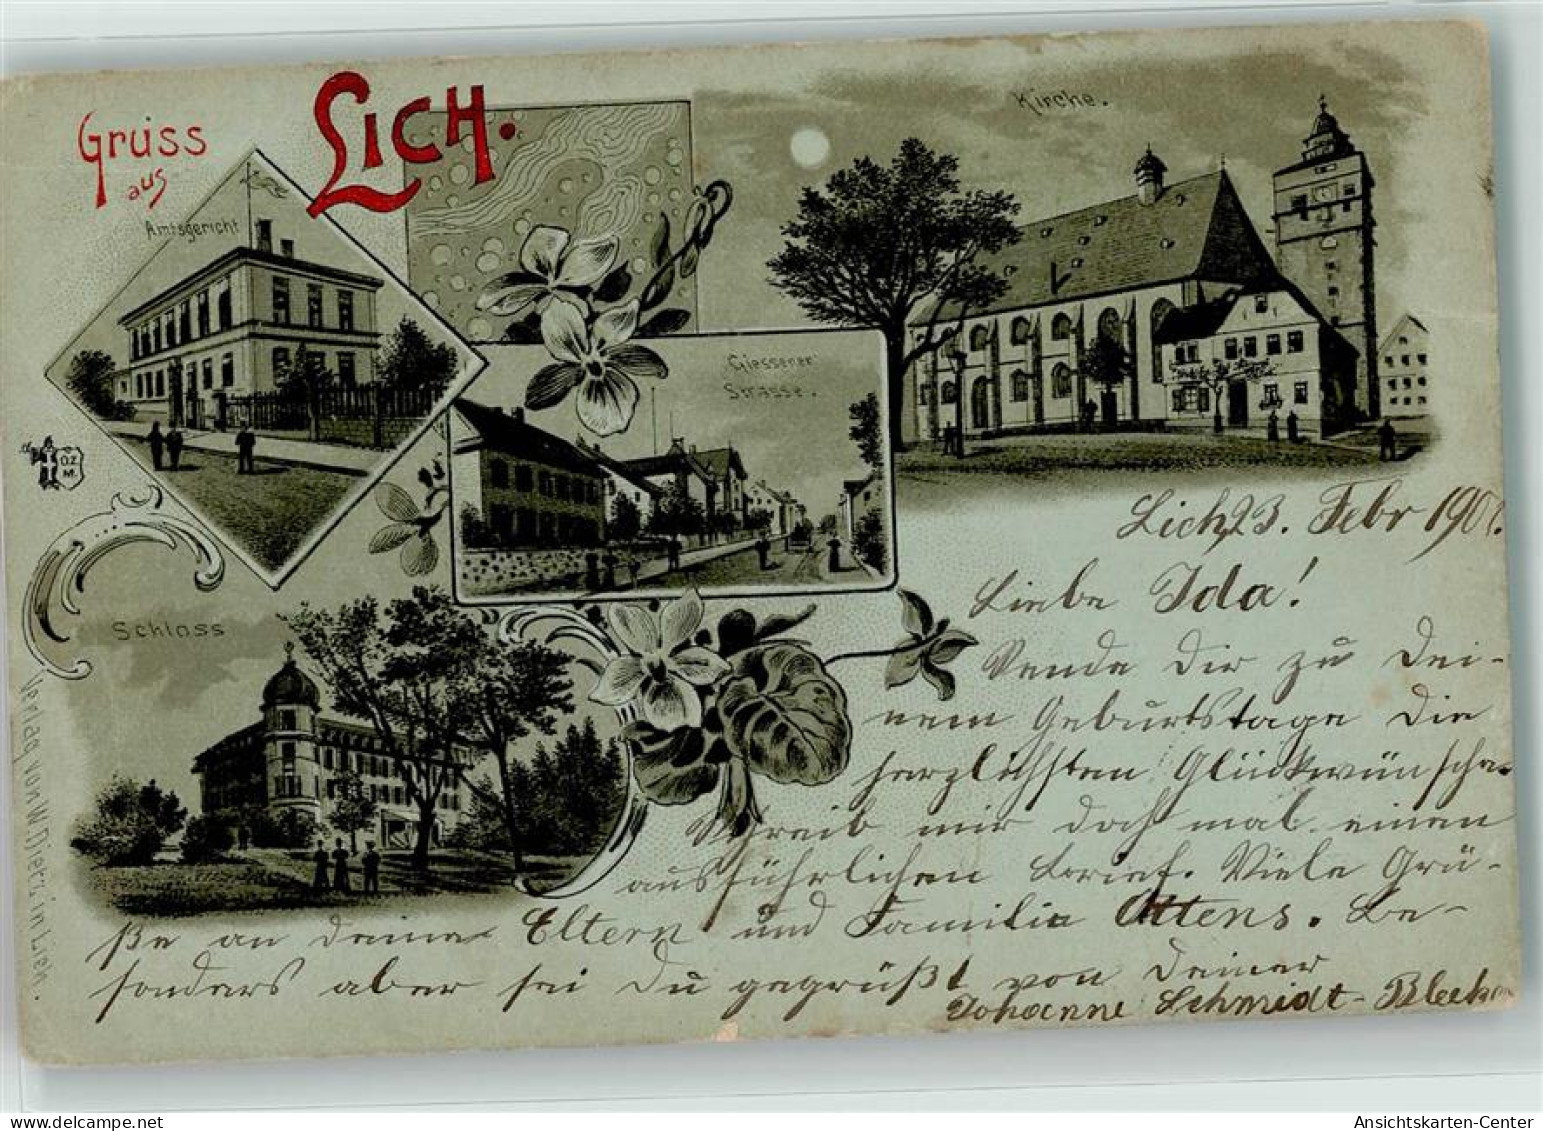 Gruss
aus
LICH.
Amtsgericht
Kirche.
Giessener
Strasse.
Schloss
Verlag von W. Dietz in Lich.
Lich, 23. Febr 190
Liebe Ida!
Sende Dir zu Dei-
nem Geburtstage die
herzlichsten Glückwünsche.
Schreib mir doch mal einen
ausführlichen Brief. Viele Grü-
ße an deine Eltern und Familie Ottens. Be-
sonders aber sei Du gegrüßt von Deiner
Johanne Schmidt-
Ansichtskarten-Center